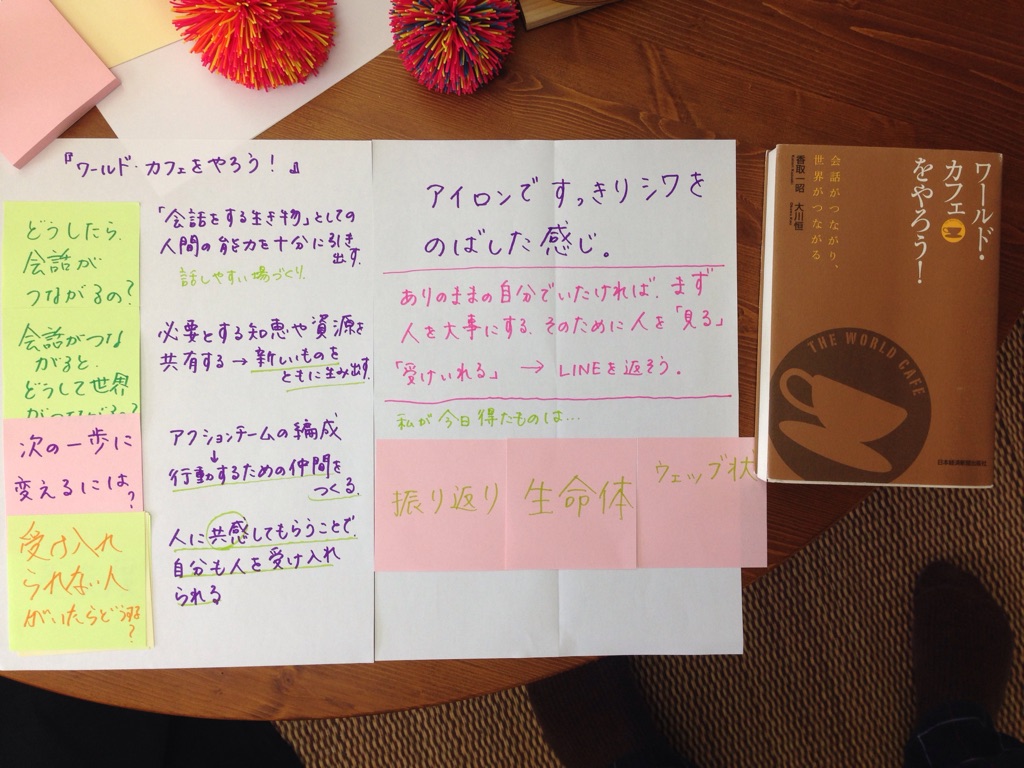 『ワールド・カフェをやろう！』
どうしたら、
会話が
つながるの?
「会話をする生き物」としての
人間の能力を十分に引き
出す。
話しやすい場づくり。
会話がつな
がると、
どうして世界
がつながるの?
必要とする知恵や資源を
共有する→新しいものを
ともに生み出す。
次の一歩に
変えるには?
アクションチームの編成
↓
行動するための仲間を
つくる。
受け入れ
られない人
がいたらどうする?
人に共感してもらうことで、
自分も人を受け入れ
られる
アイロンですっきりシワを
のばした感じ。
ありのままの自分でいたければ、まず
人を大事にする、そのために人を「見る」
「受けいれる」→LINEを返そう。
私が今日得たものは…
振り返り
生命体
ウェッブ状
ワールド・
カフェ
をやろう！
会話がつながり、
世界がつながる
香取一昭 大川恒
THE WORLD CAFE
日本経済新聞出版社